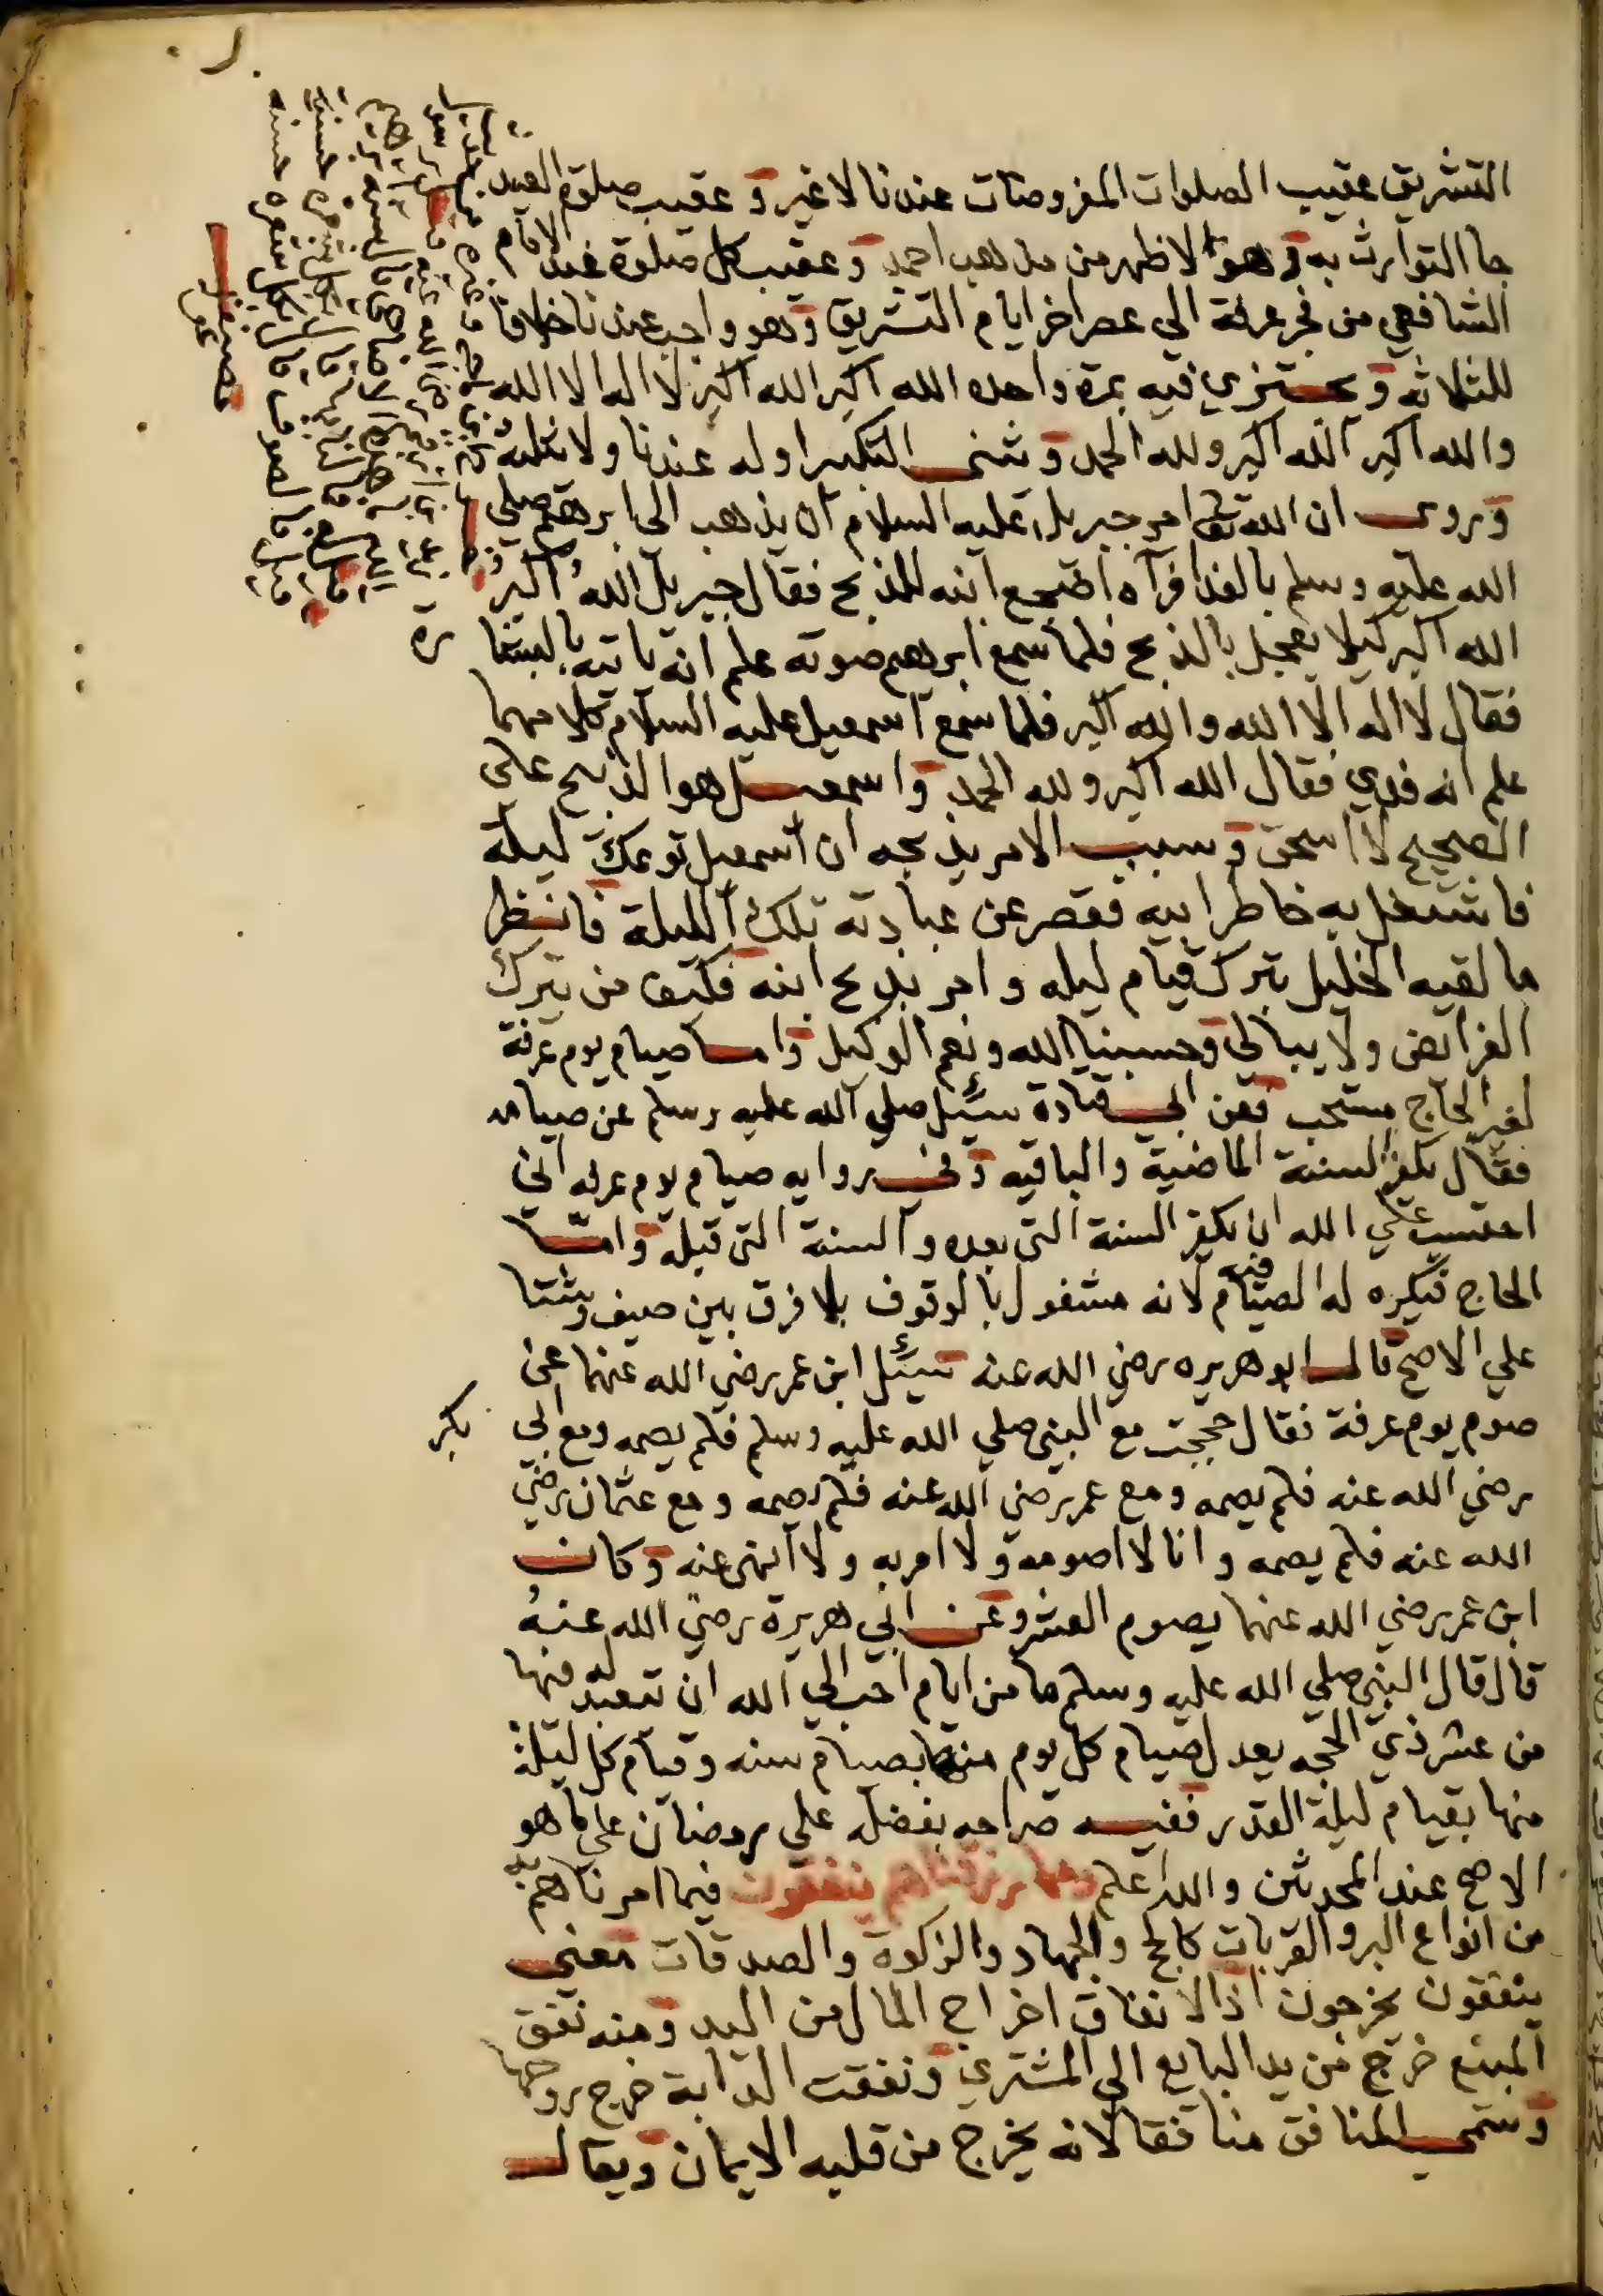 التشريق عقيب الصلوات المفروضات عندنا لا غير و عقيب صلوة العيد
جا التوارث به وهو الاظهر من مذهب احمد و عقيب كل صلوة عند الامام
الشافعي من فجر عرفة الي عصر اخر ايام التشريق وهو واجب عندنا خلافا
للثلاثه و يجتزي فيه بمرة واحده الله اكبر الله اكبر لا اله الا الله
والله اكبر الله اكبر ولله الحمد و ثني التكبير اوله عندنا ولا
وروي ان الله تعالى امر جبريل عليه السلام ان يذهب الى ابرهيم صلي
الله عليه وسلم بالفدا فرآه اضجع ابنه للذبح فقال جبريل الله اكبر
الله اكبر كيلا يعجل بالذبح فلما سمع ابرهيم صوته علم انه ياتيه بالبشارة
فقال لا اله الا الله والله اكبر فلما سمع اسمعيل عليه السلام كلامهما
علم انه فدي فقال الله اكبر ولله الحمد واسمعيل هو الذبيح على
الصحيح لا اسحق و سبب الامر بذبحه ان اسمعيل توعك ليلة
فاشتغل به خاطر ابيه فقصر عن عبادته تلك الليلة فانظر
ما لقيه الخليل بترك قيام ليله وامر بذبح ابنه فكيف من يترك
الفرايض ولا يبالي وحسبنا الله ونعم الوكيل واما صيام يوم عرفة
لغير الحاج مستحب فعن ابي قتادة سئل صلي الله عليه وسلم عن صيامه
فقال يكفر السنة الماضية والباقيه وفي روايه صيام يوم عرفه اني
احتسب علي الله ان يكفر السنة التي بعده والسنة التي قبله واما
الحاج فيكره له الصيام فيه لانه مشغول بالوقوف بلا فرق بين صيف وشتا
علي الاصح قال ابو هريره رضي الله عنه سئل ابن عمر رضي الله عنهما عن
صوم يوم عرفة فقال حججت مع النبي صلي الله عليه وسلم فلم يصمه ومع ابي بكر
رضي الله عنه فلم يصمه ومع عمر رضي الله عنه فلم يصمه ومع عثمان رضي
الله عنه فلم يصمه وانا لا اصومه ولا امر به ولا انهى عنه وكان
ابن عمر رضي الله عنهما يصوم العشر وعن ابي هريرة رضي الله عنه
قال قال النبي صلي الله عليه وسلم ما من ايام احب الي الله ان تتعبد له فيها
من عشر ذي الحجه يعدل صيام كل يوم منها بصيام سنه وقيام كل ليلة
منها بقيام ليلة القدر ففيه صراحه بفضله علي رمضان علي ما هو
الاصح عند المحدثين والله اعلم ومما رزقناهم ينفقون فيما امرناهم به
من انواع البر والقربات كالحج والجهاد والزكوة والصدقات معني
ينفقون يخرجون اذ الانفاق اخراج المال من اليد ومنه نفق
المبيع خرج من يد البايع الي المشتري ونفقت الدابة خرج روحها
وسمي المنافق منافقا لانه يخرج من قلبه الايمان ويقال